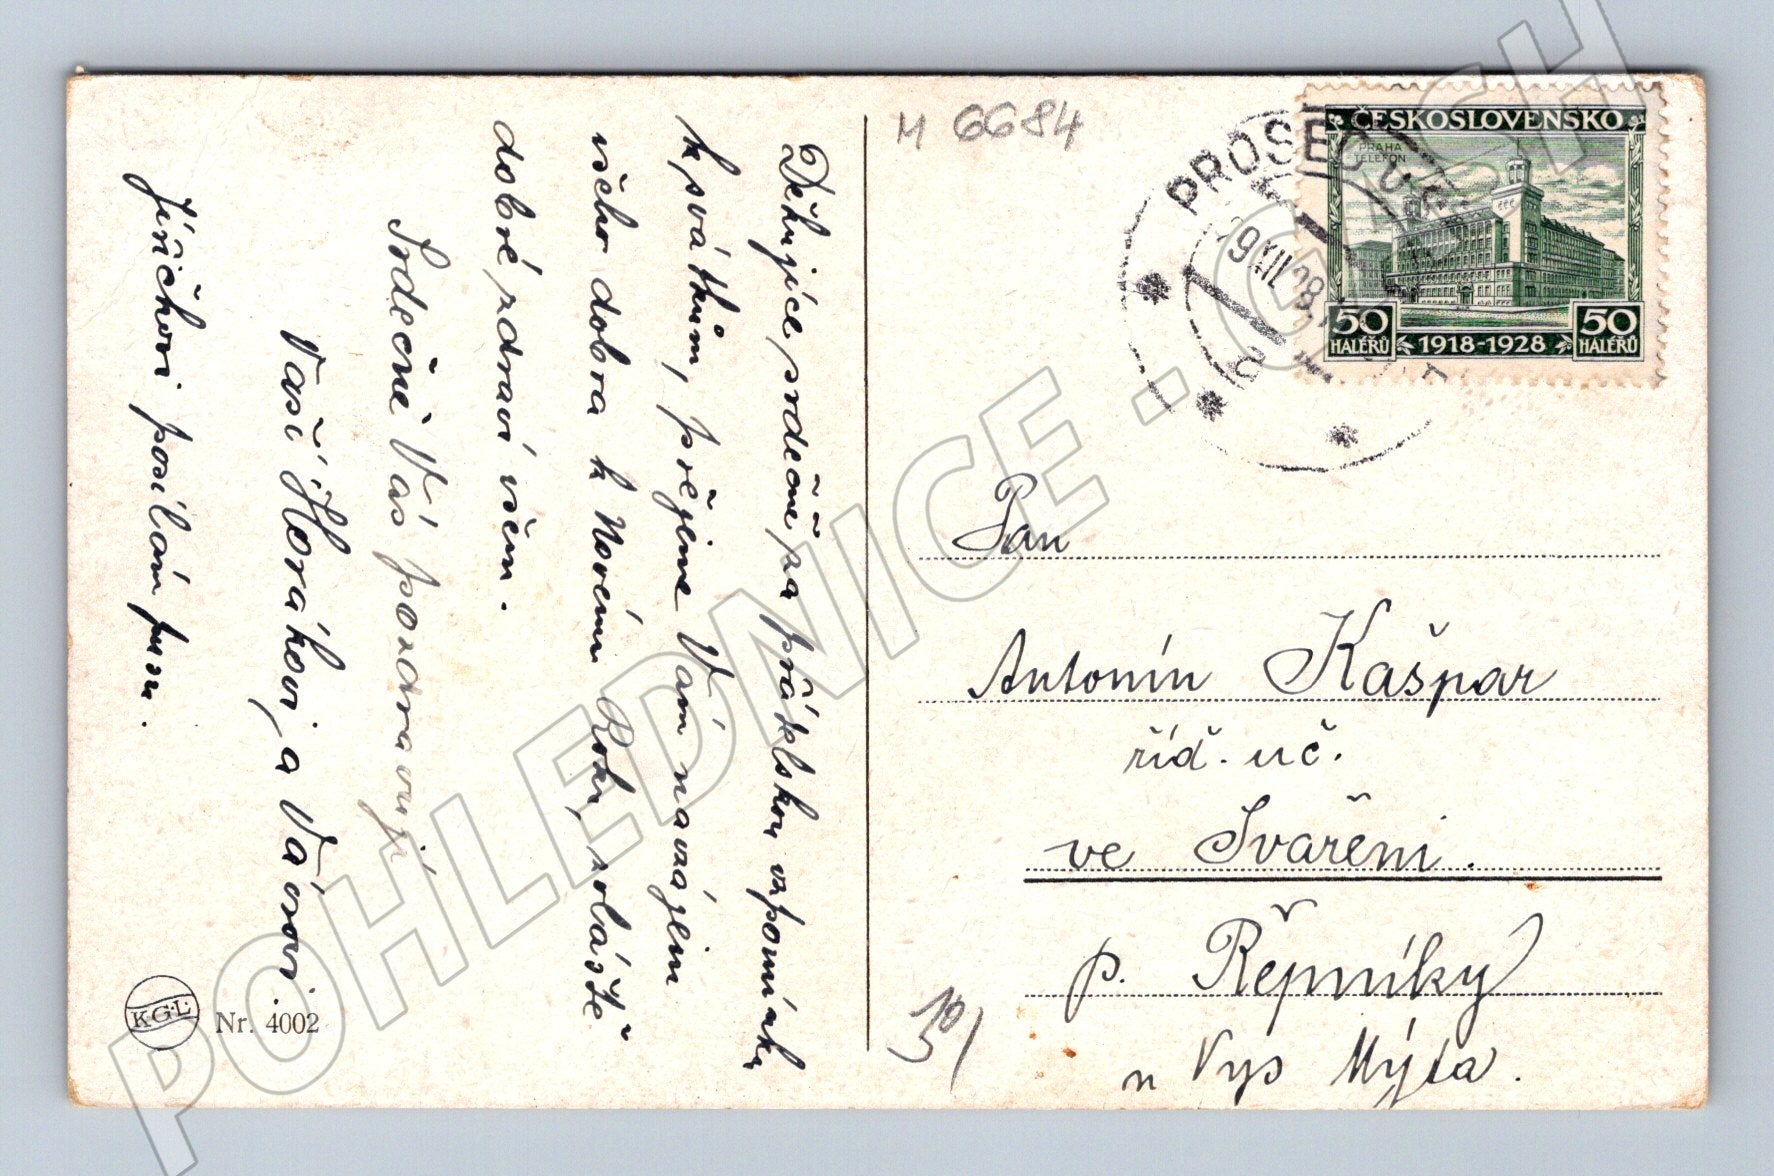 Děkujíce srdečně za přátelskou vzpomínku
k svátkům, přejeme Vám navzájem
všeho dobra k Novému Roku, zvláště
dobré zdraví všem.
Srdečně Vás pozdravují
Vaši Horákovi a Vávrovi.
Jiříčkovi posílám pusu.
KGL
Nr. 4002
M 6684
PROSEČ U
ČESKOSLOVENSKO
PRAHA
TELEFON
50
HALÉŘŮ
1918-1928
50
HALÉŘŮ
Pan
Antonín Kašpar
říd. uč.
ve Svařeni.
p. Řepníky
u Vys Mýta.
POHLEDNICE.CZECH